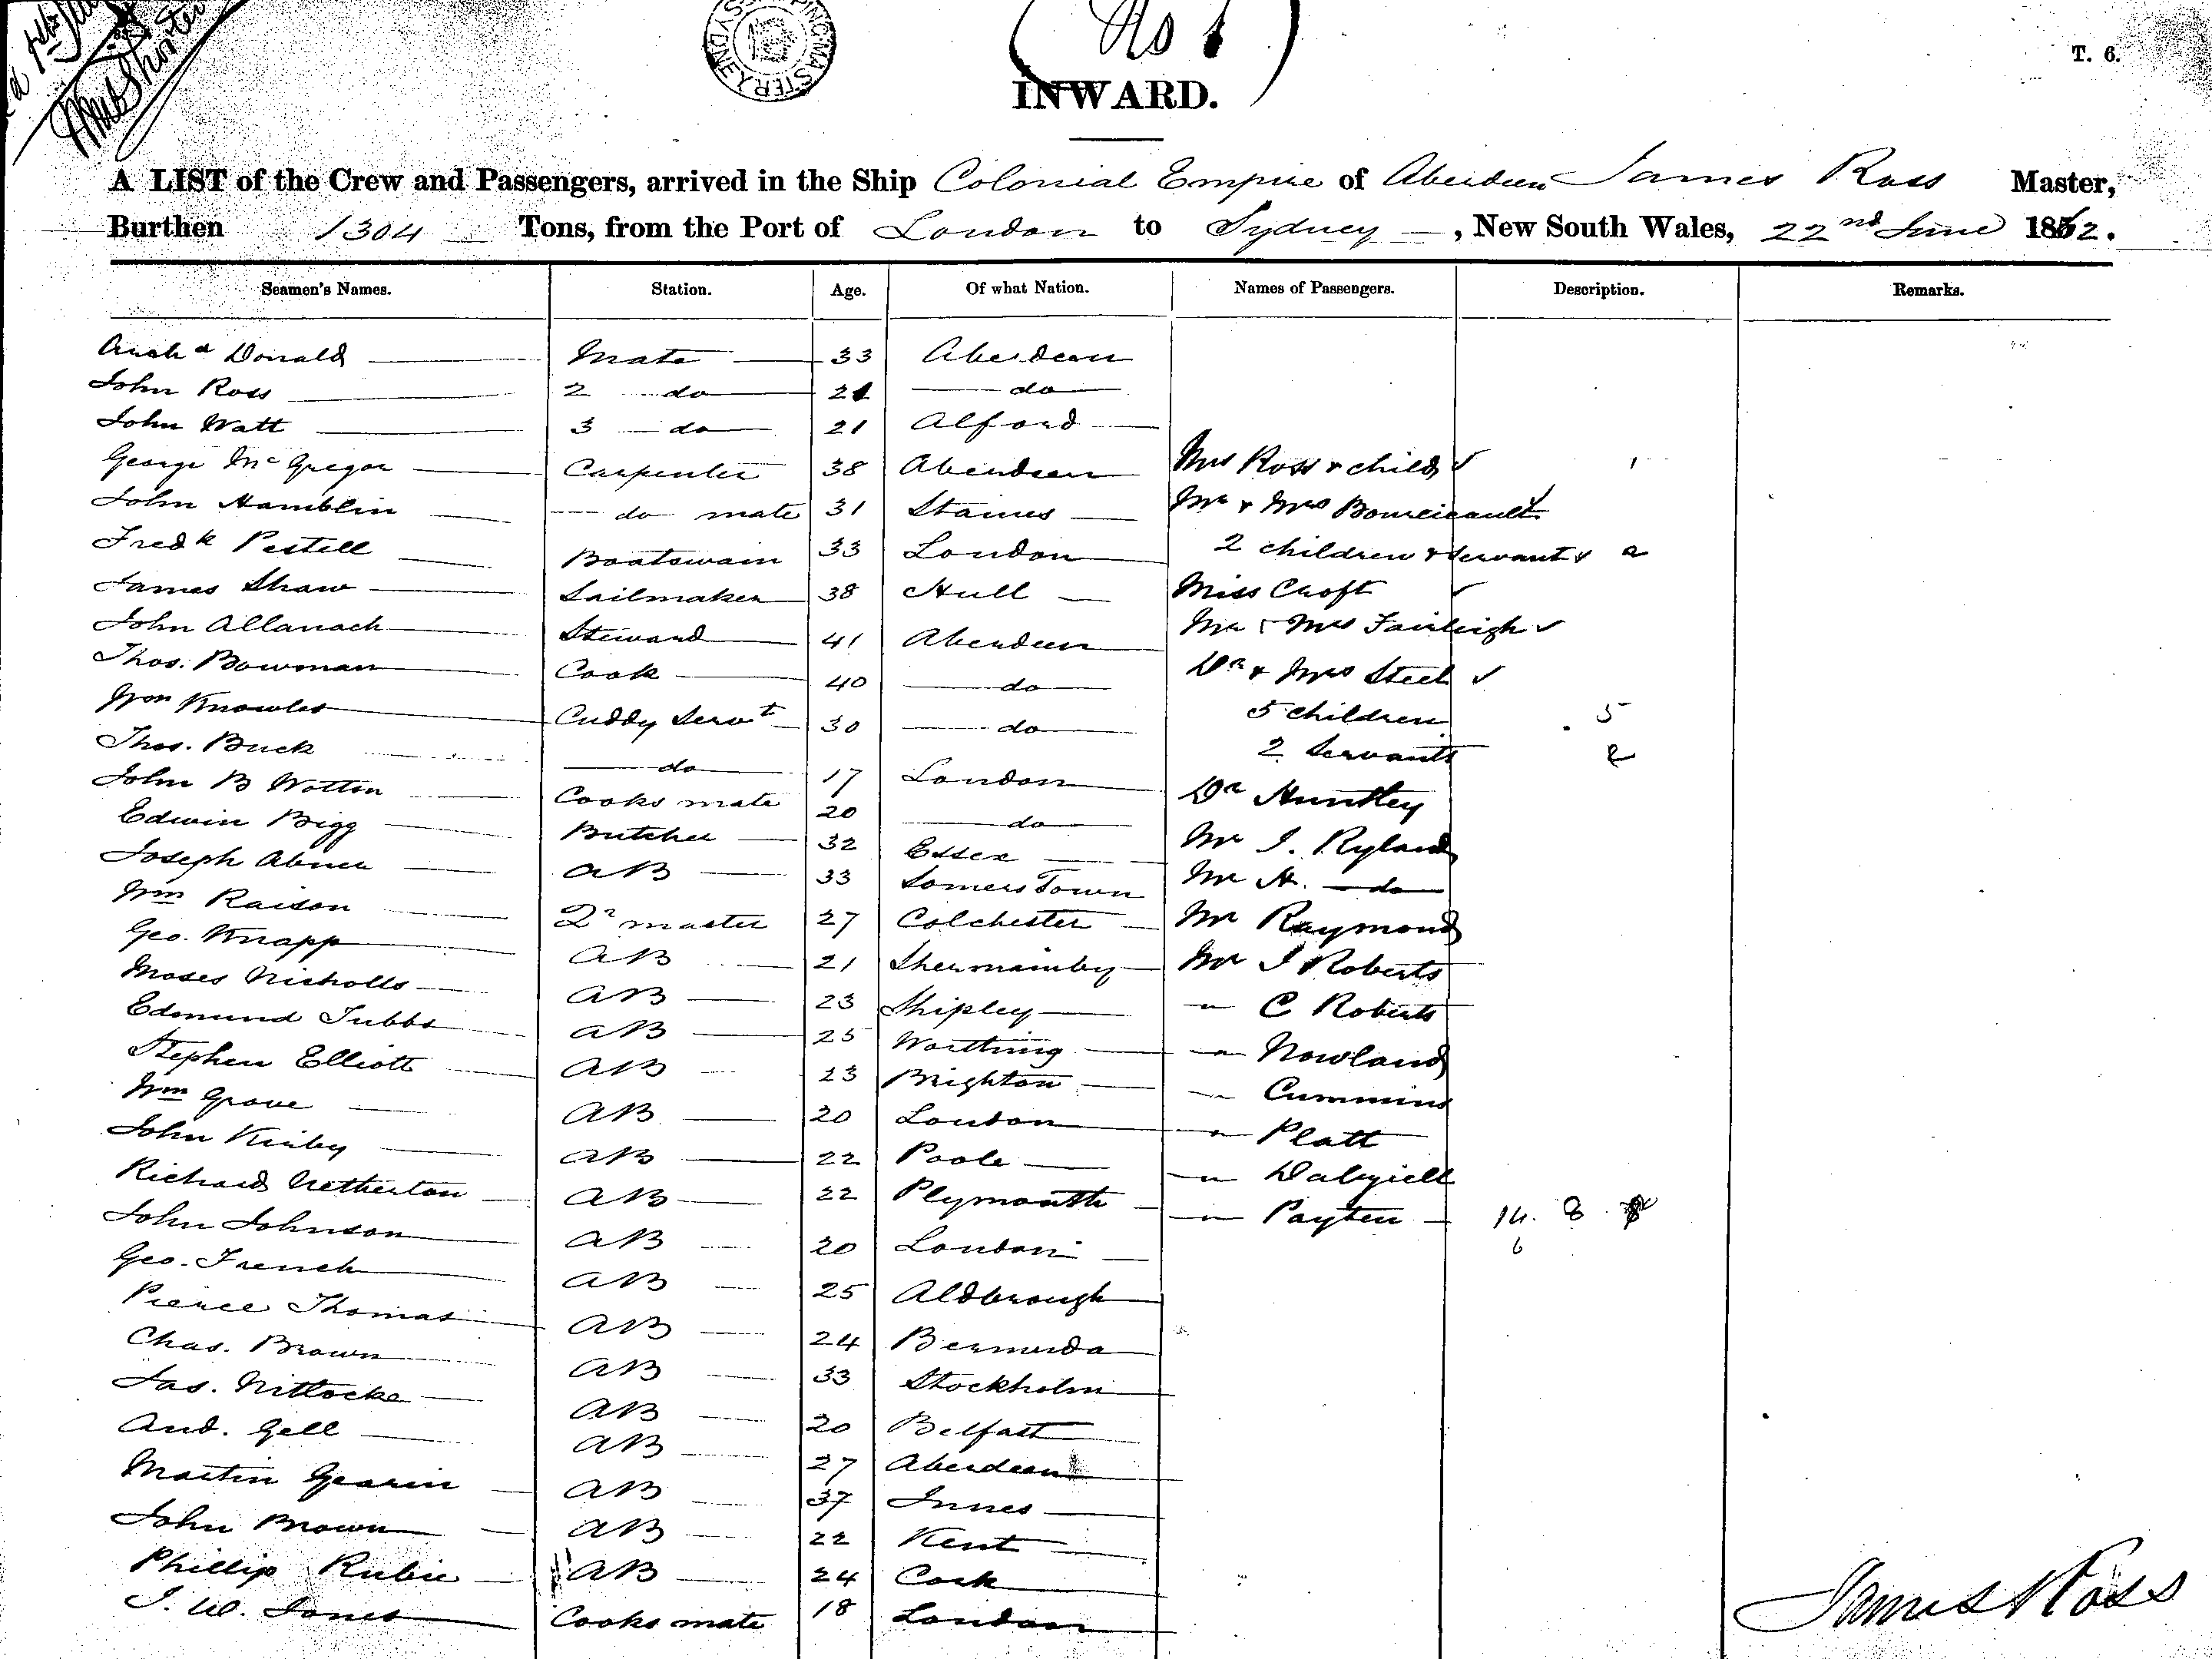 (No 1)
SYDNEY SHIPPING MASTER
T. 6.
INWARD.
A LIST of the Crew and Passengers, arrived in the Ship Colonial Empire of Aberdeen James Ross Master,
Burthen 1304 Tons, from the Port of London to Sydney, New South Wales, 22nd June 1862.
Seamen's Names. Station. Age. Of what Nation. Names of Passengers. Description. Remarks.
Archd Donald Mate 33 Aberdeen
John Ross 2 do 21 do
John Watt 3 do 21 Alford
George McGregor Carpenter 38 Aberdeen Mrs Ross & child
John Hamblin do mate 31 Staines Mr & Mrs Bourcicault
Fredk Pestell Boatswain 33 London 2 children & servant 2
James Shaw Sailmaker 38 Hull Miss Croft
John Allanach Steward 41 Aberdeen Mr & Mrs Fairleigh
Thos. Bowman Cook 40 do Dr & Mrs Steel
Wm Knowles Cuddy Servt 30 do 5 children 5
Thos. Buck do 17 London 2 Servants 2
John B Wotton Cooks mate 20 do Dr Huntley
Edwin Bigg Butcher 32 Essex Mr J. Ryland
Joseph Abner AB 33 Somers Town Mr H. do
Wm Raison Qr master 27 Colchester Mr Raymond
Geo. Knapp AB 21 Mr J Roberts
Moses Nicholls AB 23 Shipley " C Roberts
Edmund Tubbs AB 25 Worthing " Nowland
Stephen Elliott AB 23 Brighton " Cummins
Wm Grove AB 20 London " Platt
John Kirby AB 22 Poole " Dalyiell
Richard Netherton AB 22 Plymouth " Payten 14. 8
John Johnson AB 20 London 6
Geo. French AB 25 Aldbrough
Pierce Thomas AB 24 Bermuda
Chas. Brown AB 33 Stockholm
Jas. Nittocke AB 20 Belfast
And. Gell AB 27 Aberdeen
Martin Gearin AB 37 Innes
John Brown AB 22 Kent
Phillip Rubie AB 24 Cork
J. W. Jones Cooks mate 18 London
James Ross